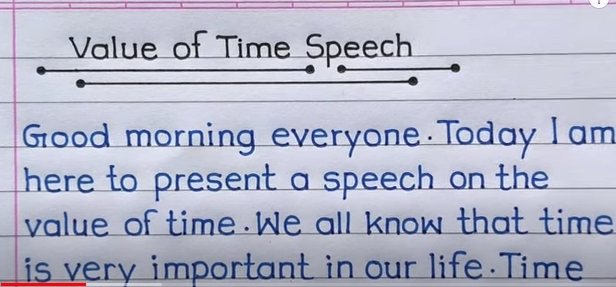 Value of Time Speech
Good morning everyone. Today I am
here to present a speech on the
value of time. We all know that time
is very important in our life. Time